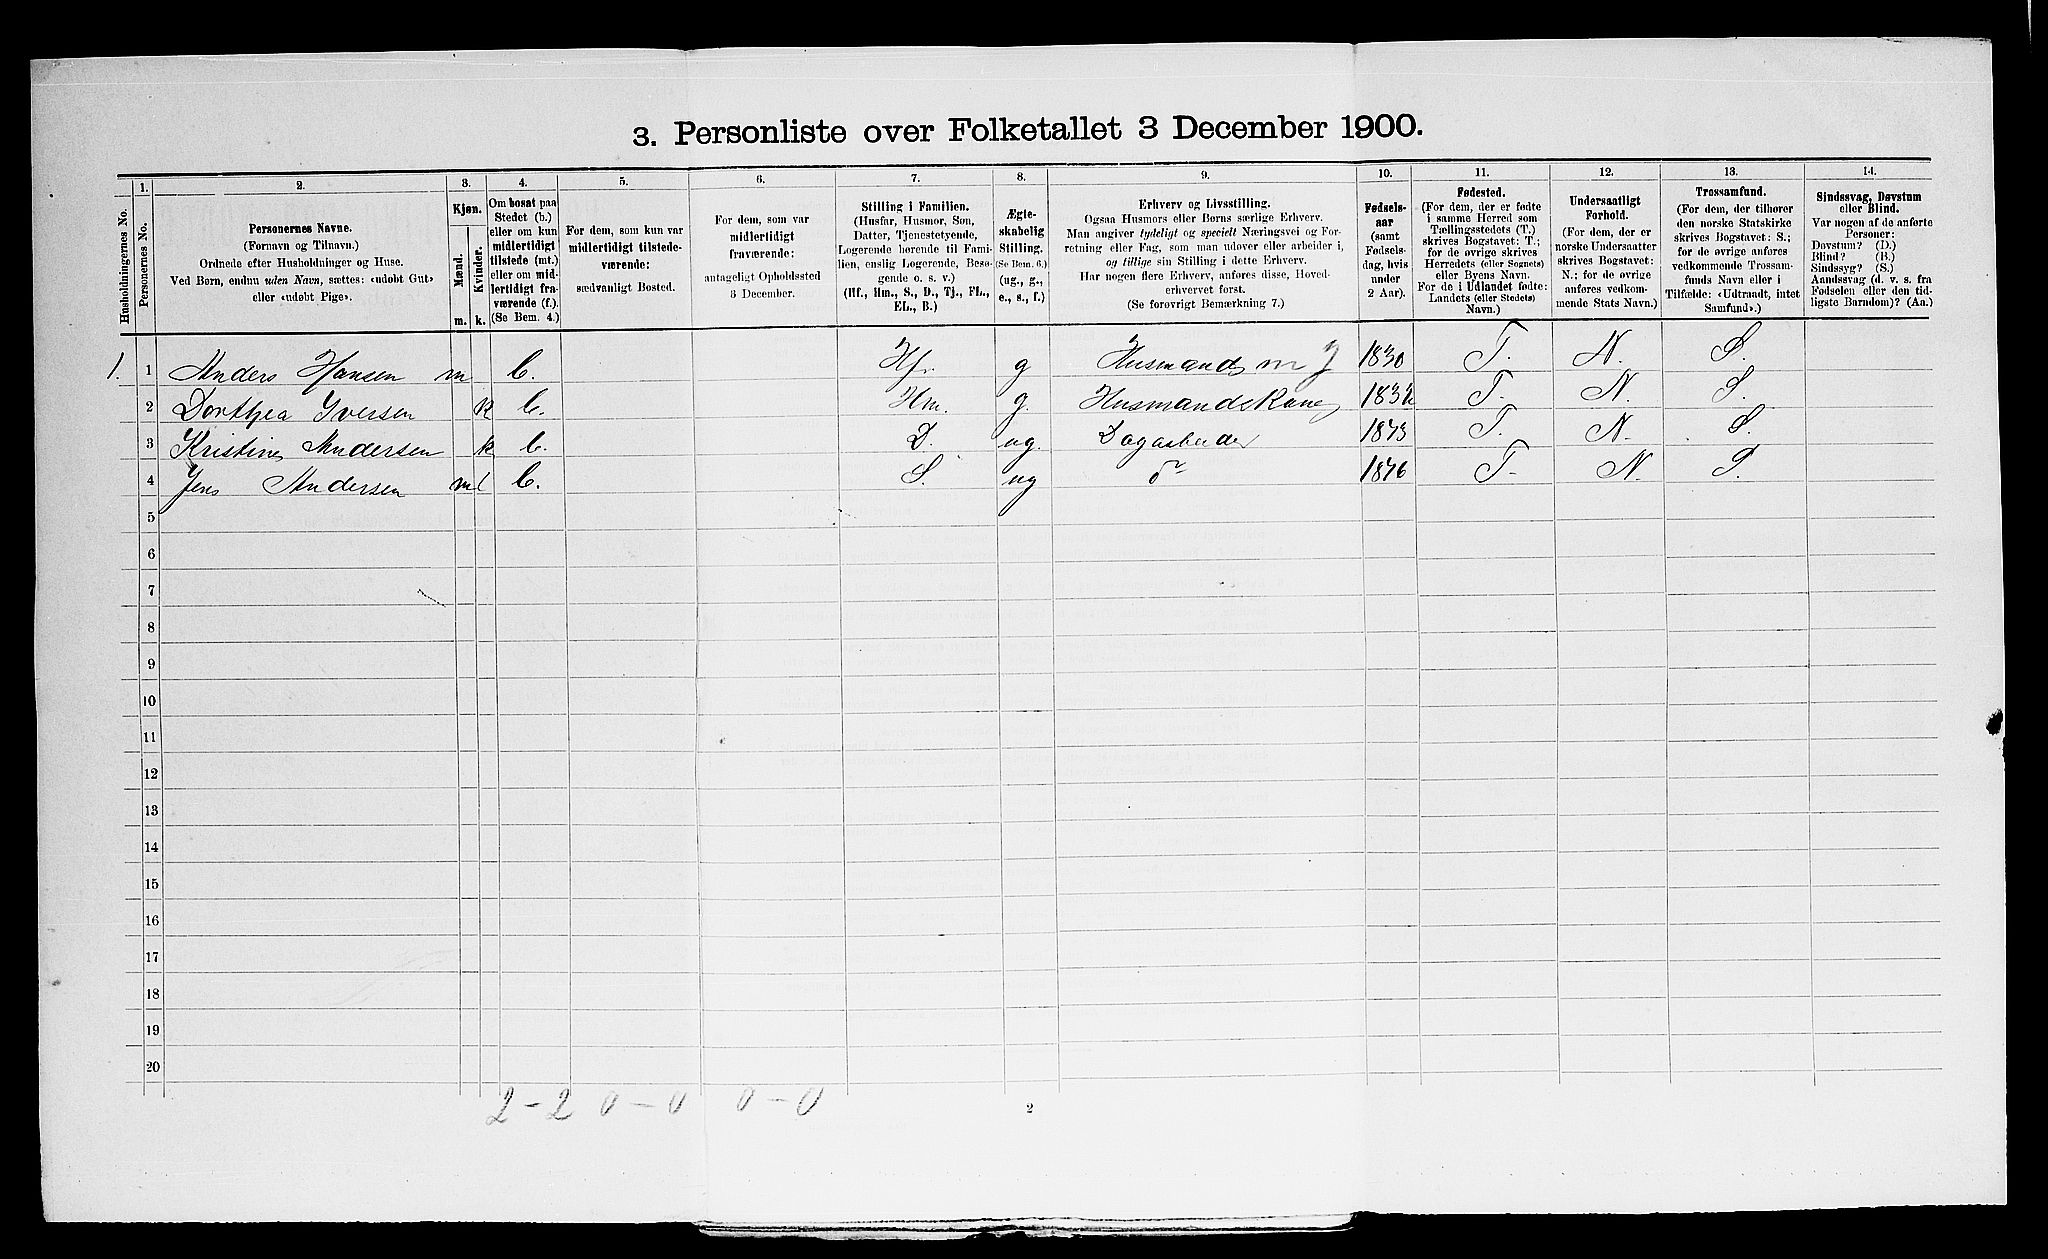 3. Personliste over Folketallet 3 December 1900.
Husholdningernes No.
1.
Personernes No.
2.
Personernes Navne.
(Fornavn og Tilnavn.)
Ordnede efter Husholdninger og Huse.
Ved Børn, endnu uden Navn, sættes: «udøbt Gut»
eller «udøbt Pige».
3.
Kjøn.
Mænd.
Kvinder.
m. k.
4.
Om bosat paa
Stedet (b.)
eller om kun
midlertidigt
tilstede (mt.)
eller om mid-
lertidigt fra-
værende (f.)
(Se Bem. 4.)
5.
For dem, som kun var
midlertidigt tilstede-
værende:
sædvanligt Bosted.
6.
For dem, som var
midlertidigt
fraværende:
antageligt Opholdssted
3 December.
7.
Stilling i Familien.
(Husfar, Husmor, Søn,
Datter, Tjenestetyende,
Logerende hørende til Fami-
lien, enslig Logerende, Besø-
gende o. s. v.)
(Hf., Hm., S., D., Tj., FL.,
EL., B.)
8.
Ægte-
skabelig
Stilling.
(Se Bem. 6.)
(ug., g.,
e., s., f.)
9.
Erhverv og Livsstilling.
Ogsaa Husmors eller Børns særlige Erhverv.
Man angiver tydeligt og specielt Næringsvei og For-
retning eller Fag, som man udøver eller arbeider i,
og tillige sin Stilling i dette Erhverv.
Har nogen flere Erhverv, anføres disse, Hoved-
erhvervet først.
(Se forøvrigt Bemærkning 7.)
10.
Fødsels-
aar
(samt
Fødsels-
dag, hvis
under
2 Aar).
11.
Fødested.
(For dem, der er fødte
i samme Herred som
Tællingsstedets (T.)
skrives Bogstavet: T.;
for de øvrige skrives
Herredets (eller Sognets)
eller Byens Navn.
For de i Udlandet fødte:
Landets (eller Stedets)
Navn.)
12.
Undersaatligt
Forhold.
(For dem, der er
norske Undersaatter
skrives Bogstavet:
N.; for de øvrige
anføres vedkom-
mende Stats Navn.)
13.
Trossamfund.
(For dem, der tilhører
den norske Statskirke
skrives Bogstavet: S.;
for de øvrige anføres
vedkommende Trossam-
funds Navn eller i
Tilfælde: «Udtraadt, intet
Samfund».)
14.
Sindssvag, Døvstum
eller Blind.
Var nogen af de anførte
Personer:
Døvstum? (D.)
Blind? (B.)
Sindssyg? (S.)
Aandssvag (d. v. s. fra
Fødselen eller den tid-
ligste Barndom)? (Aa.)
1. 1 Anders Hansen m b. Hf. g Husmand m J 1830 T. N. S.
2 Dorthea Iversen k b. Hm. g. Husmandskone 1832 T. N. S.
3 Kristine Andersen k b. D. ug. Dagarbeider 1873 T. N. S.
4 Jens Andersen m b. S. ug do 1876 T. N. S.
5
6
7
8
9
10
11
12
13
14
15
16
17
18
19
20
2 - 2 0 - 0 0 - 0
2